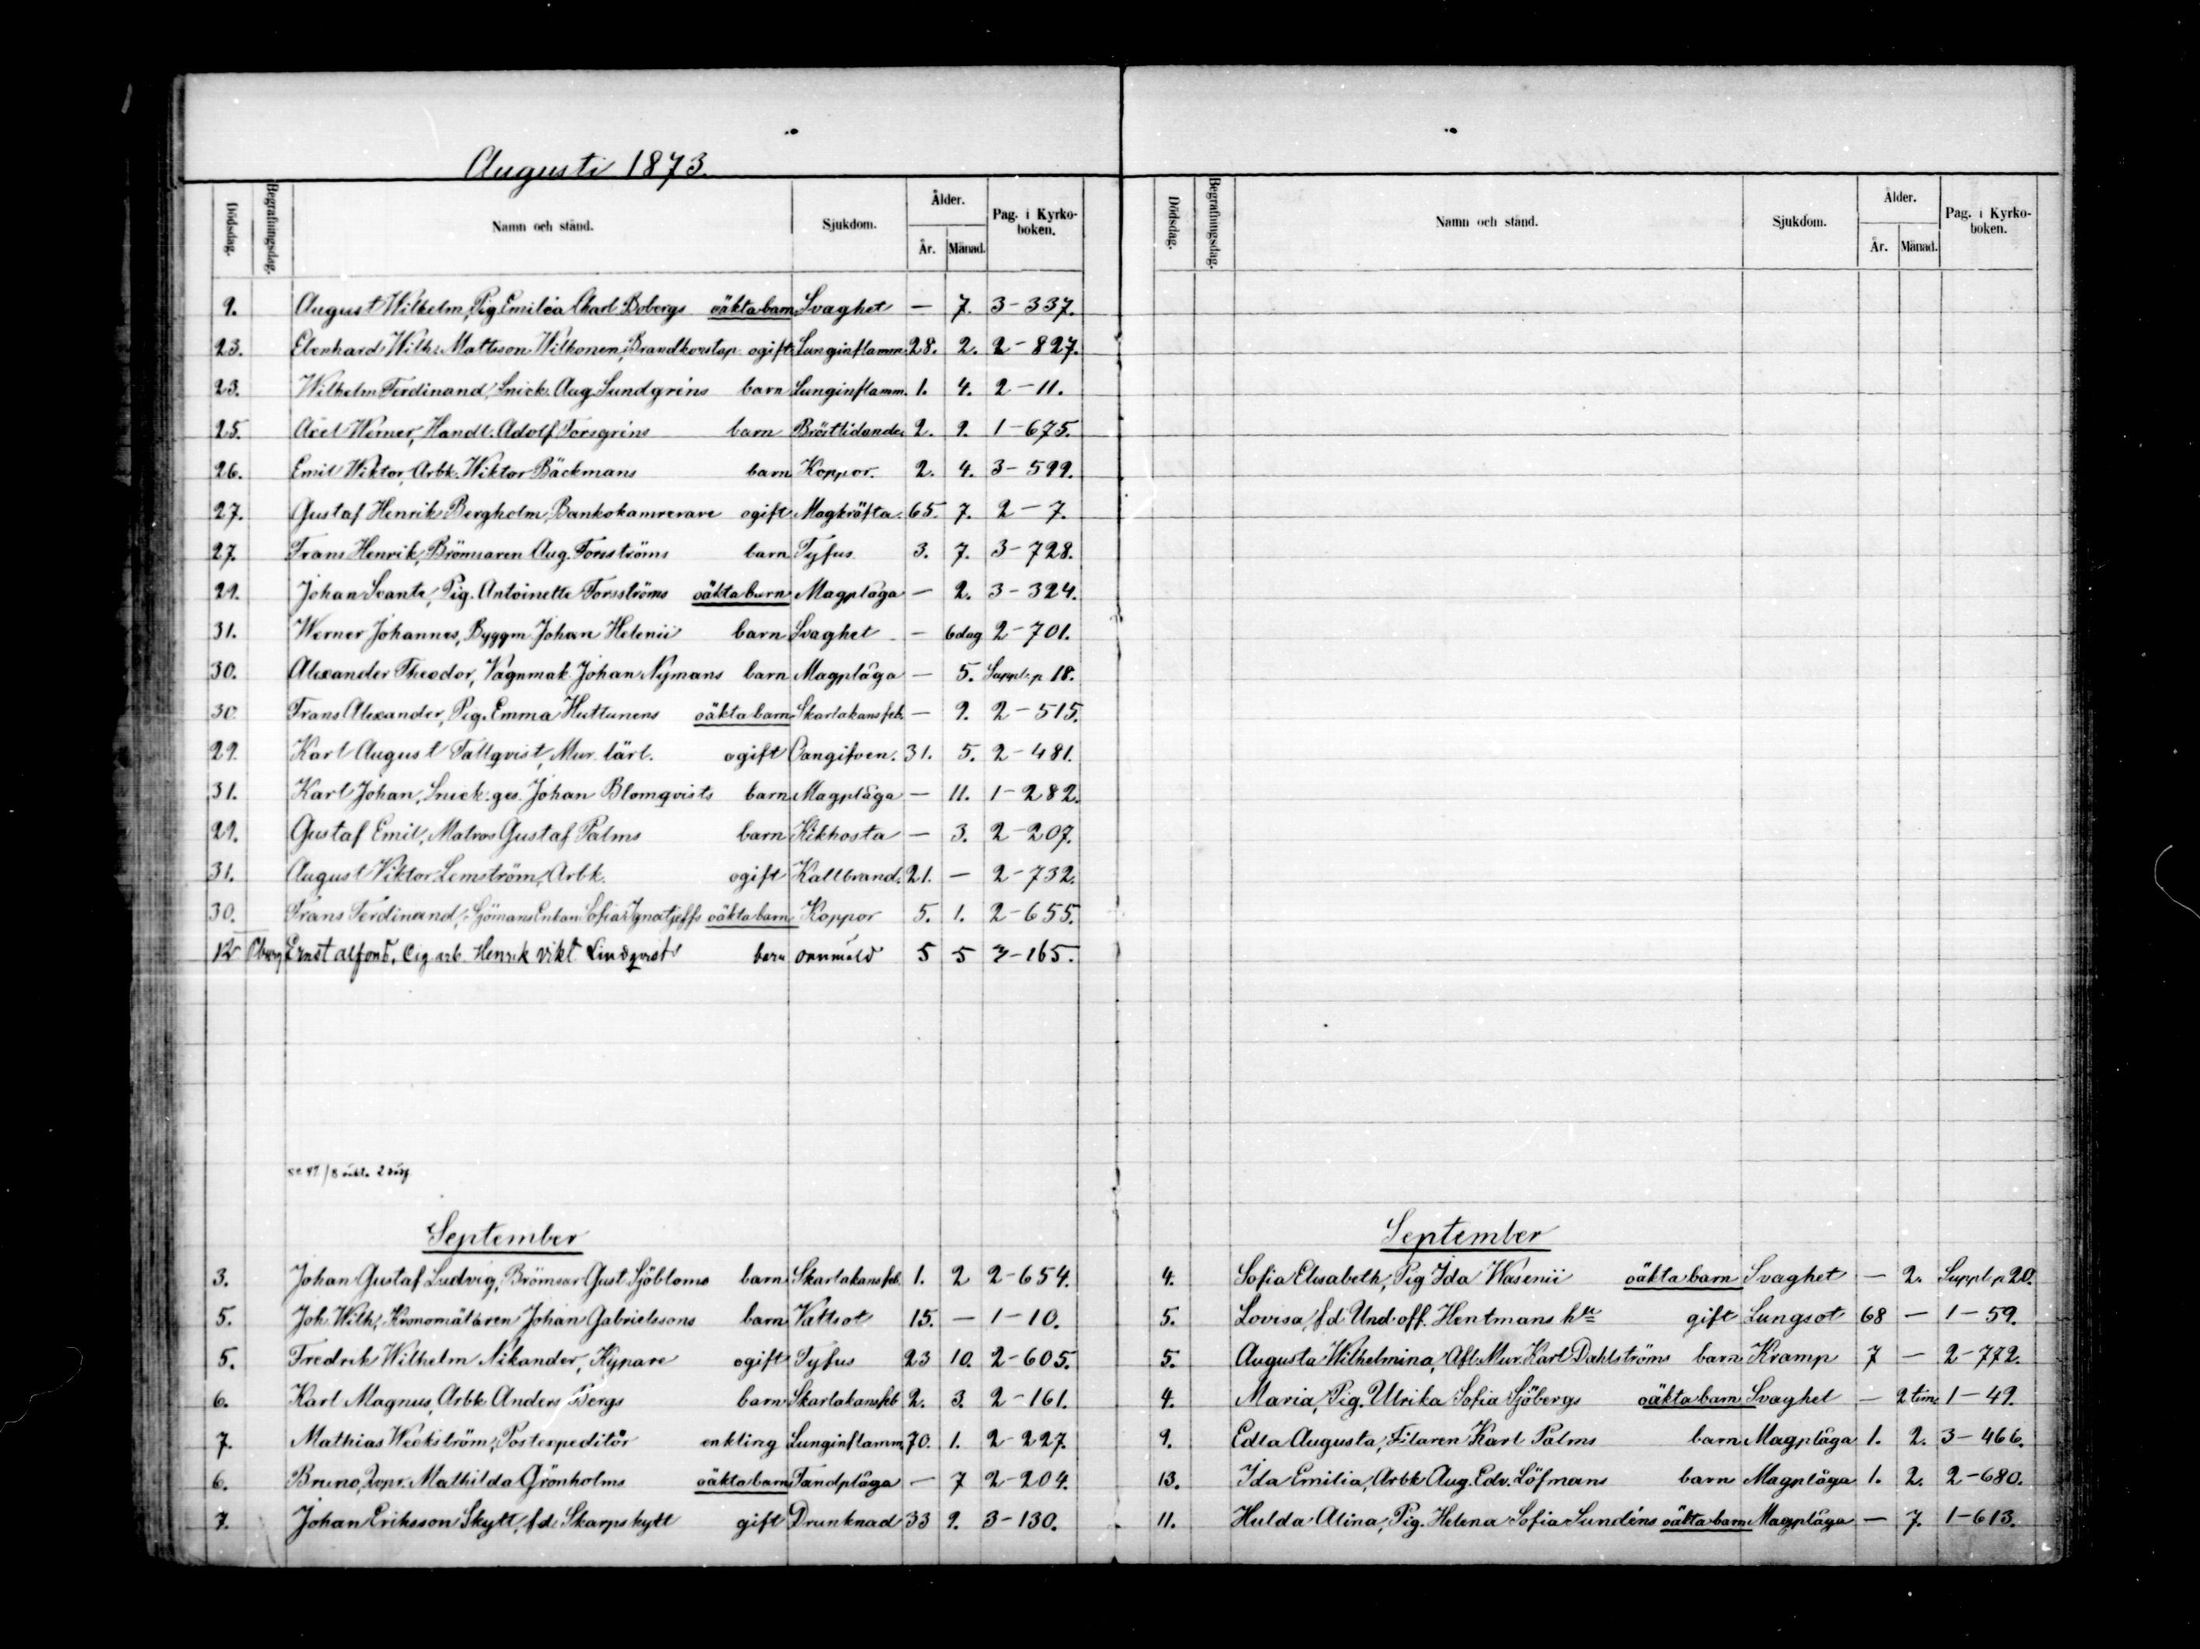 Augusti 1873.
Dödsdag. Begrafningsdag. Namn och stånd. Sjukdom. Ålder. År. Månad. Pag. i Kyrkoboken.
9. August Wilhelm, Pig. Emilia Charl. Bobergs oäkta barn Svaghet — 7. 3-337.
23. Ebenhard Wilh: Mattsson Wilkonen, Brandkonstap. ogift Lunginflamm. 28. 2. 2-827.
23. Wilhelm Ferdinand, Snick. Aug. Sundgréns barn Lunginflamm. 1. 4. 2-11.
25. Axel Werner, Handl. Adolf Forsgréns barn Bröstlidande 2. 9. 1-675.
26. Emil Wiktor, Arbk. Wiktor Bäckmans barn Koppor. 2. 4. 3-599.
27. Gustaf Henrik Bergholm, Bankokamrerare ogift Magkräfta 65. 7. 2-7.
27. Frans Henrik, Brömsaren Aug. Forsströms barn Tyfus 3. 7. 3-728.
29. Johan Svante, Pig. Antoinette Forsströms oäkta barn Magplåga — 2. 3-324.
31. Werner Johannes, Byggm. Johan Helenii barn Svaghet — 6 dag 2-701.
30. Alexander Theodor, Vagnmak. Johan Nymans barn Magplåga — 5. Suppl. p 18.
30. Frans Alexander, Pig. Emma Huttunens oäkta barn Skarlakansfeb. — 9. 2-515.
29. Karl August Tallqvist, Mur. lärl. ogift 31. 5. 2-481.
31. Karl Johan, Snick. ges. Johan Blomqvists barn Magplåga — 11. 1-282.
29. Gustaf Emil, Matros Gustaf Palms barn Kikhosta — 3. 2-207.
31. August Viktor Lemström, Arbk. ogift Kallbrand. 21. — 2-732.
30. Frans Ferdinand, Sjömans Enkan Sofia Ignatjeffs oäkta barn Koppor 5. 1. 2-655.
12 Ernst Alfons, Cig arb. Henrik Vikt Lindqvist barn 5 5 3-165.
September
3. Johan Gustaf Ludvig, Brömsar Gust. Sjöbloms barn Skarlakansfeb. 1. 2 2-654.
5. Joh. Wilh, Kronomätaren Johan Gabrielssons barn Vattsot 15. — 1-10.
5. Fredrik Wilhelm Nikander, Kypare ogift Tyfus 23 10. 2-605.
6. Karl Magnus, Arbk. Anders Bergs barn Skarlakansfeb 2. 3. 2-161.
7. Mathias Weckström, Postexpeditör enkling Lunginflamm. 70. 1. 2-227.
6. Bruno, Mathilda Grönholms oäkta barn Tandplåga — 7 2-204.
7. Johan Eriksson Skytt, f.d. Skarpskytt gift Drunknad 33 9. 3-130.
Dödsdag. Begrafningsdag. Namn och stånd. Sjukdom. Ålder. År. Månad. Pag. i Kyrkoboken.
September
4. Sofia Elisabeth, Pig Ida Wasenii oäkta barn Svaghet — 2. Suppl. p 20.
5. Lovisa, f.d. Und. off. Hentmans h:u gift Lungsot 68 — 1-59.
5. Augusta Wilhelmina, Afl. Mur. Karl Dahlströms barn Kramp 7 — 2-772.
4. Maria, Pig. Ulrika Sofia Sjöbergs oäkta barn Svaghet — 2 tim. 1-49.
9. Edla Augusta, Filaren Karl Palms barn Magplåga 1. 2. 3-466.
13. Ida Emilia, Arbk Aug. Edv. Löfmans barn Magplåga 1. 2. 2-680.
11. Hulda Alina, Pig. Helena Sofia Sundéns oäkta barn Magplåga — 7. 1-613.